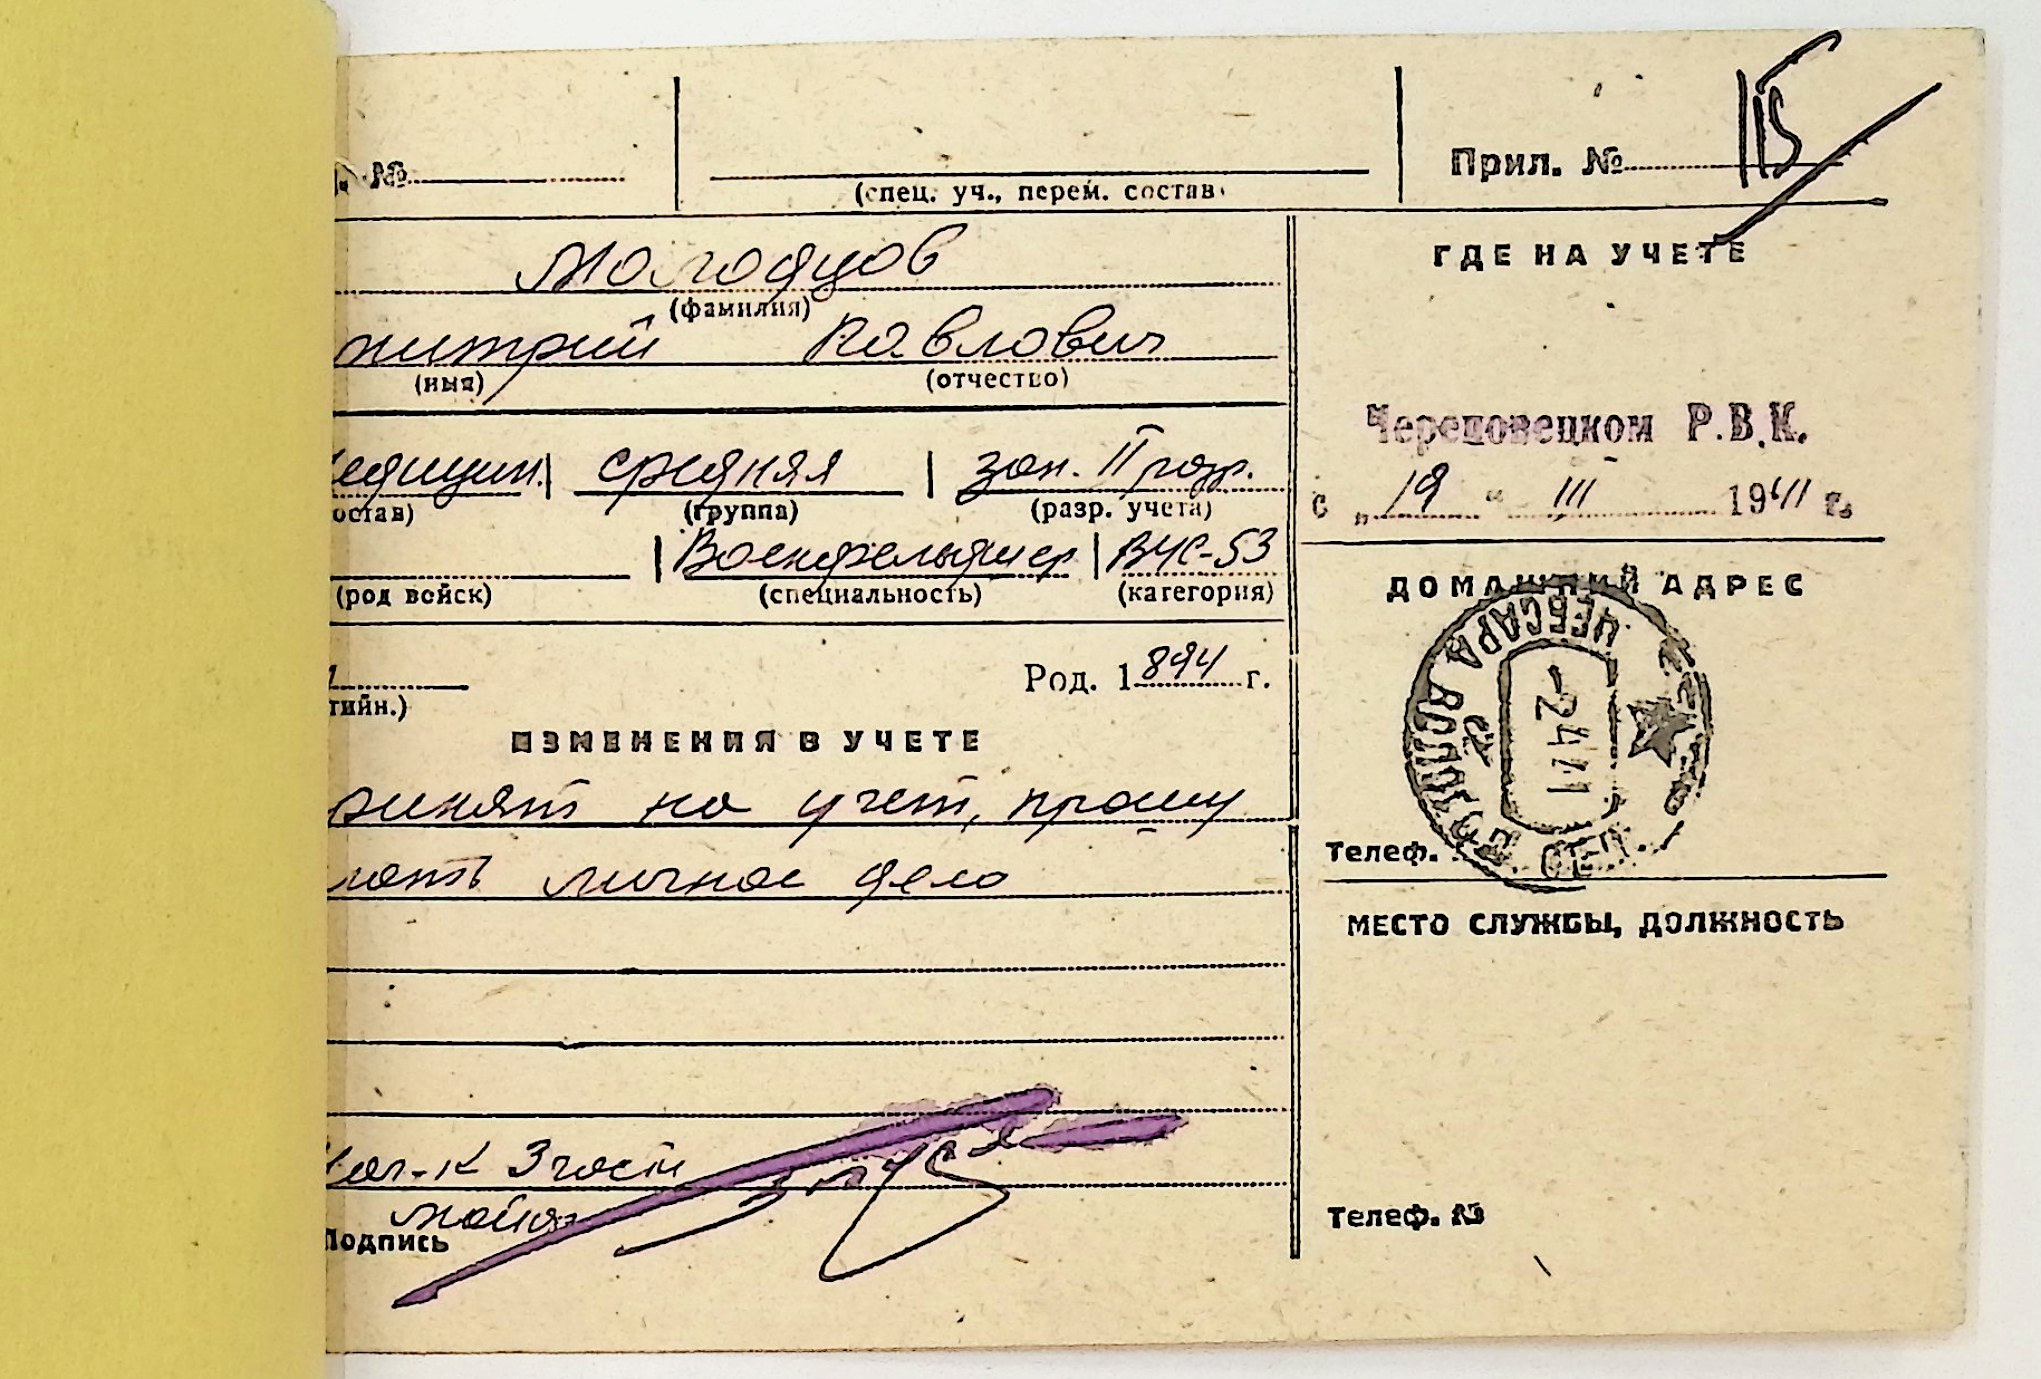 . №
(спец. уч., перем. состав)
Прил. № 115
Молодцов
(фамилия)
митрий Павлович
(имя) (отчество)
едицин. | средняя | зап. II разр.
остав) (группа) (разр. учета)
| Военфельдшер | ВУС-53
(род войск) (специальность) (категория)
Род. 1894 г.
тийн.)
ИЗМЕНЕНИЯ В УЧЕТЕ
ринят на учет, прошу
лать личное дело
Нач-к 3 части
майор
Подпись
ГДЕ НА УЧЕТЕ
Череповецком Р.В.К.
с „19" III 1941 г.
ДОМАШНИЙ АДРЕС
ЧЕБСАРА ВОЛОГ
-2 4 41
Телеф.
МЕСТО СЛУЖБЫ, ДОЛЖНОСТЬ
Телеф. №